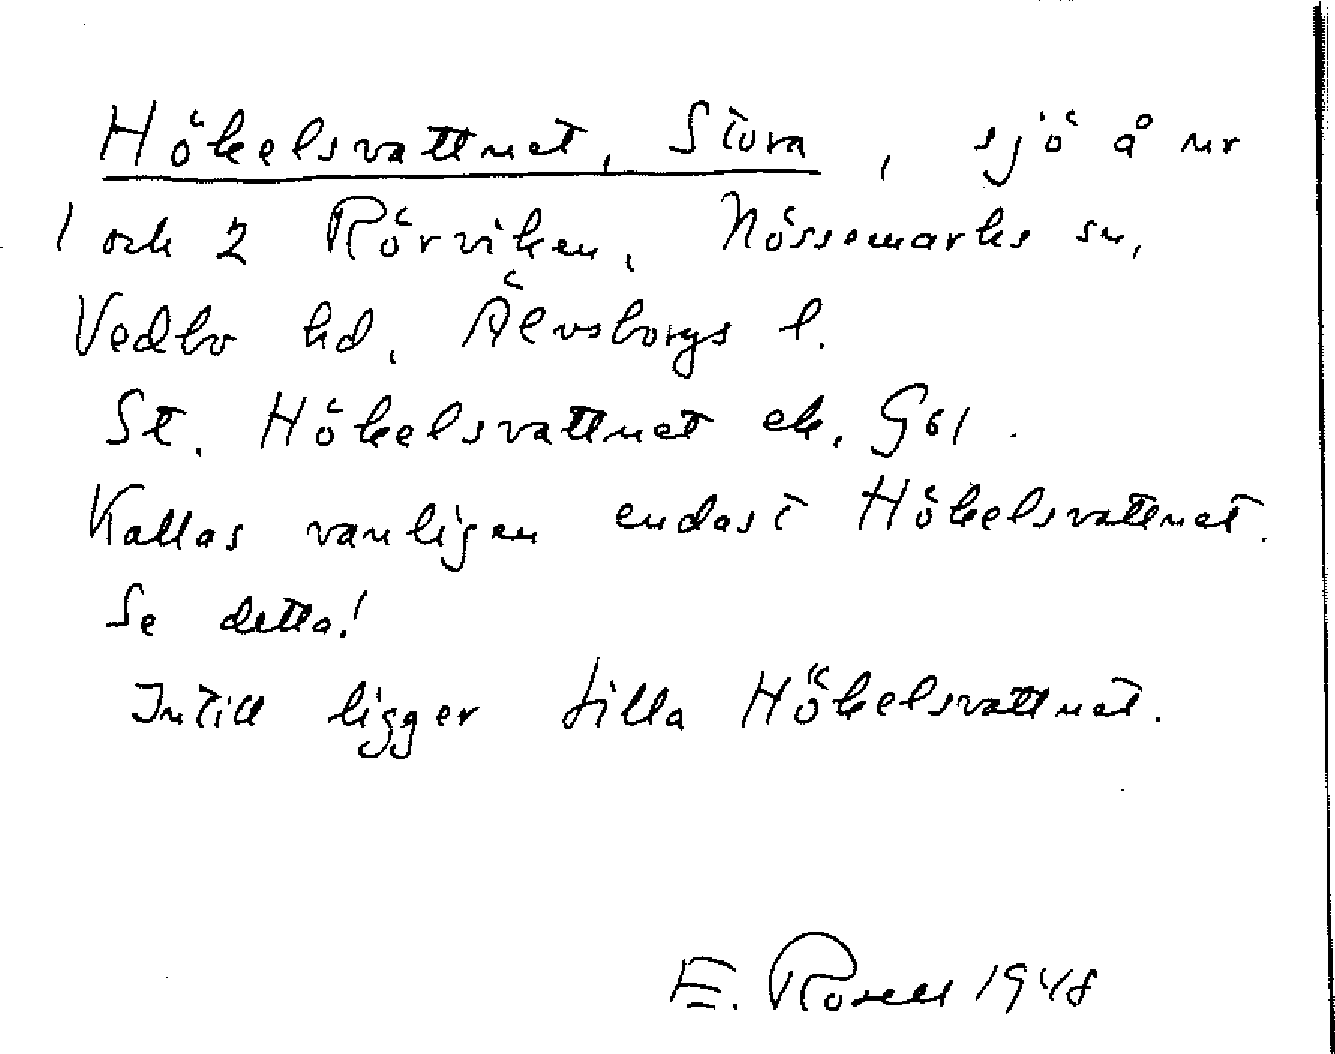 Hökelsvattnet, Stora, sjö å nr
1 och 2 Rörviken, Nössemarks sn,
Vedbo hd, Älvsborgs l.
St. Hökelsvattnet ek. G61.
Kallas vanligen endast Hökelsvattnet.
Se detta!
Intill ligger Lilla Hökelsvattnet.
E. Rosell 1948